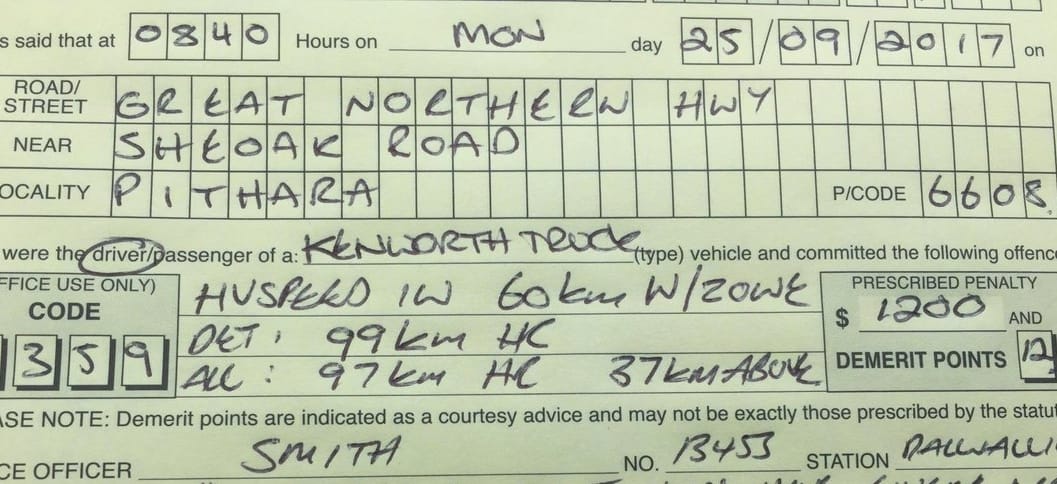 s said that at 0840 Hours on MON day 25/09/2017 on
ROAD/STREET GREAT NORTHERN HWY
NEAR SHEOAK ROAD
OCALITY PITHARA P/CODE 6608
were the driver/passenger of a: KENWORTH TRUCK (type) vehicle and committed the following offenc
FFICE USE ONLY) CODE 359
HVSPEED IN 60km W/ZONE
DET: 99km HC
ALL: 97km HC 37KM ABOVE
PRESCRIBED PENALTY
$ 1200 AND
DEMERIT POINTS 12
ASE NOTE: Demerit points are indicated as a courtesy advice and may not be exactly those prescribed by the statut
CE OFFICER SMITH NO. 13453 STATION DALWALLI